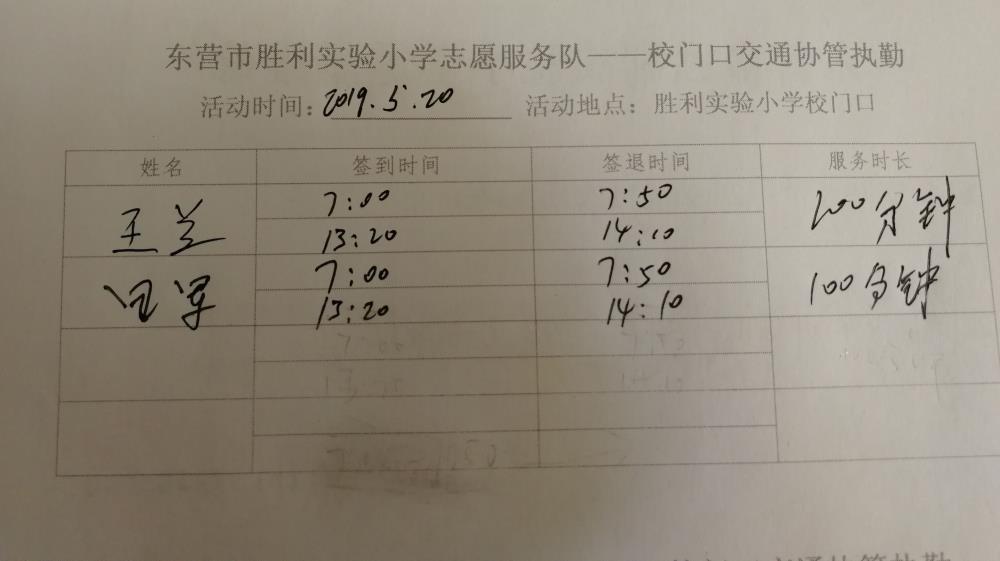 东营市胜利实验小学志愿服务队——校门口交通协管执勤
活动时间：2019.5.20 活动地点：胜利实验小学校门口
姓名 签到时间 签退时间 服务时长
王兰 7:00 7:50 100分钟
13:20 14:10
7:00 7:50 100分钟
13:20 14:10